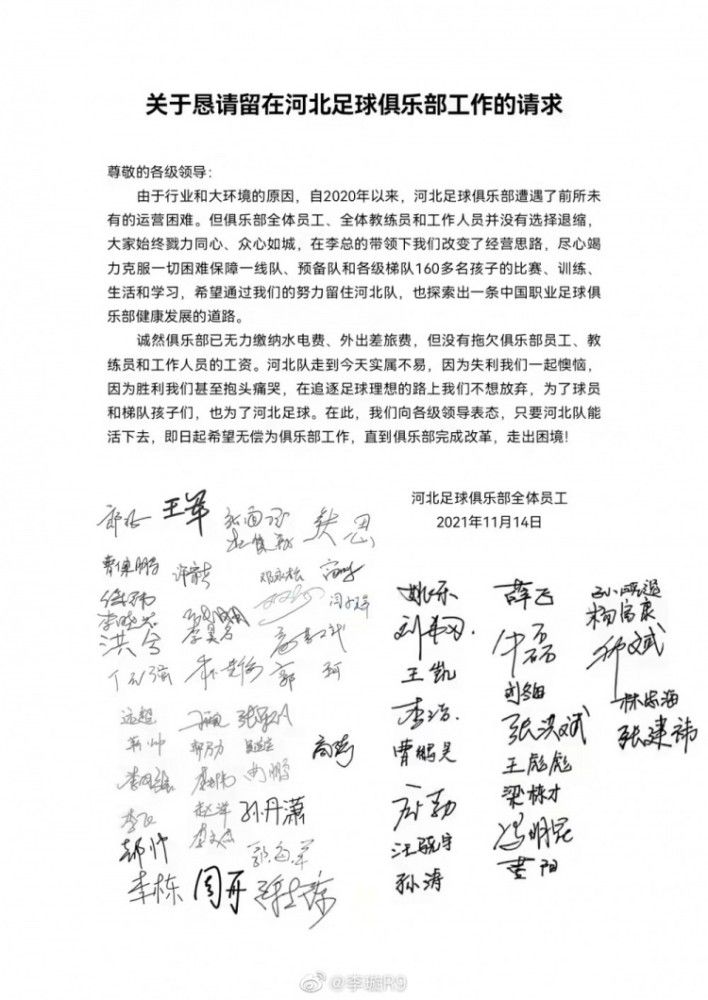 关于恳请留在河北足球俱乐部工作的请求
尊敬的各级领导：
由于行业和大环境的原因，自2020年以来，河北足球俱乐部遭遇了前所未
有的运营困难。但俱乐部全体员工、全体教练员和工作人员并没有选择退缩，
大家始终戮力同心、众心如城，在李总的带领下我们改变了经营思路，尽心竭
力克服一切困难保障一线队、预备队和各级梯队160多名孩子的比赛、训练、
生活和学习，希望通过我们的努力留住河北队，也探索出一条中国职业足球俱
乐部健康发展的道路。
诚然俱乐部已无力缴纳水电费、外出差旅费，但没有拖欠俱乐部员工、教
练员和工作人员的工资。河北队走到今天实属不易，因为失利我们一起懊恼，
因为胜利我们甚至抱头痛哭，在追逐足球理想的路上我们不想放弃，为了球员
和梯队孩子们，也为了河北足球。在此，我们向各级领导表态，只要河北队能
活下去，即日起希望无偿为俱乐部工作，直到俱乐部完成改革，走出困境！
河北足球俱乐部全体员工
2021年11月14日
王军
洪兮
郭珂
姚乐
薛飞
杨富良
王凯
李浩
刘翔
林志海
张洪斌
张建祎
曹鹏昊
王彪彪
梁栋才
冯明昆
汪骁宇
孙涛
黄阳
高尚
赵洋
孙丹潇
郝帅
李栋
周再
@李璇R9